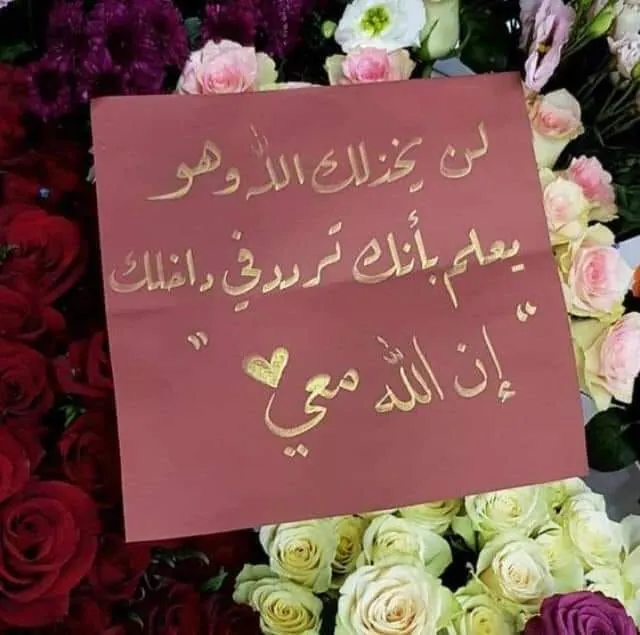 لن يخذلك الله وهو
يعلم بأنك تردد في داخلك
"إن الله معي"